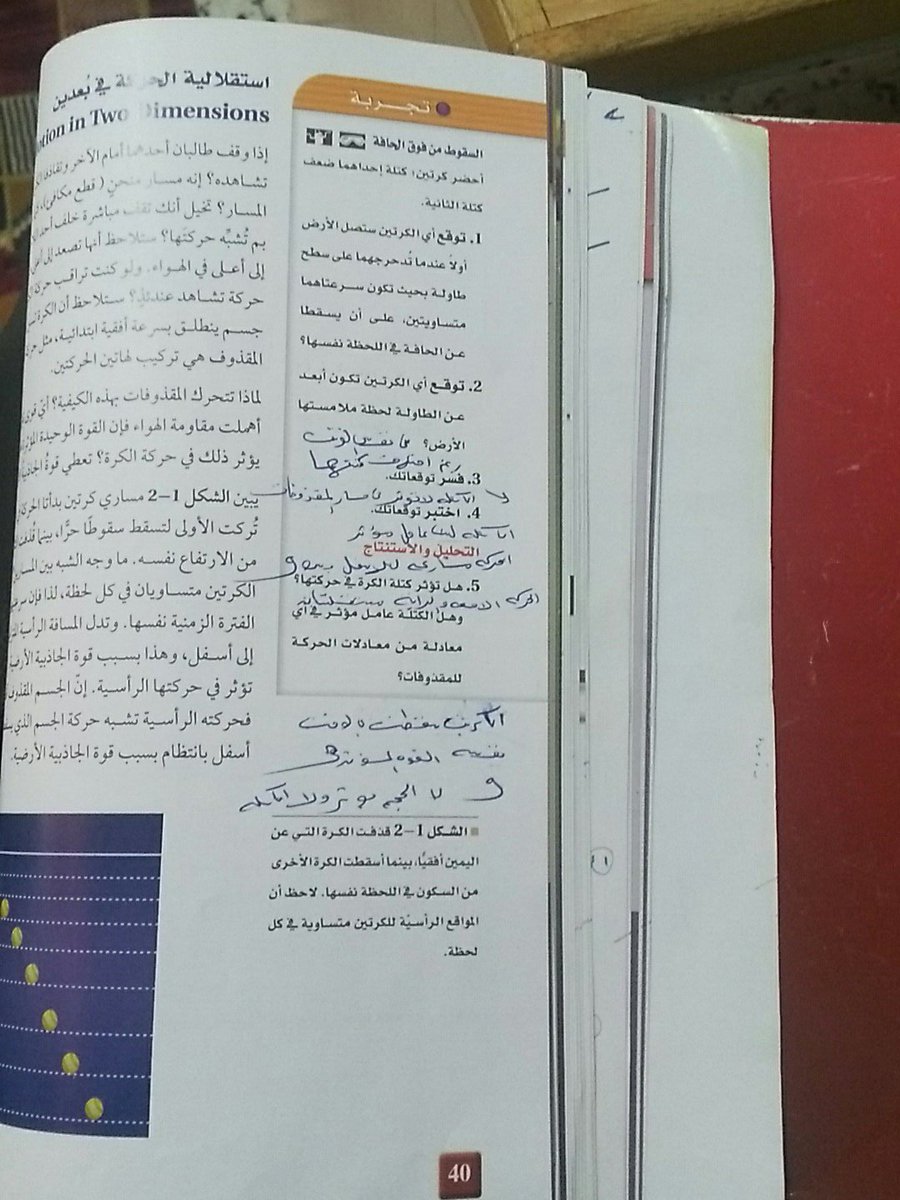 تجربة
السقوط من فوق الحافة
أحضر كرتين؛ كتلة إحداهما ضعف
كتلة الثانية.
1. توقع أي الكرتين ستصل الأرض
أولاً عندما تُدحرجهما على سطح
طاولة بحيث تكون سرعتاهما
متساويتين، على أن يسقطا
عن الحافة في اللحظة نفسها؟
2. توقع أي الكرتين تكون أبعد
عن الطاولة لحظة ملامستها
الأرض؟ نفس الوقت
رغم اختلاف كتلتها
3. فسّر توقعاتك.
لا الكتلة لا تؤثر المقذوفات
4. اختبر توقعاتك.
الكتلة ليست عامل مؤثر
التحليل والاستنتاج
5. هل تؤثر كتلة الكرة في حركتها؟
وهل الكتلة عامل مؤثر في أي
معادلة من معادلات الحركة
للمقذوفات؟
نفسه
و لا الحجم يؤثر ولا الكتلة
الشكل 1–2 قذفت الكرة التي عن
اليمين أفقيًّا، بينما أسقطت الكرة الأخرى
من السكون في اللحظة نفسها. لاحظ أن
المواقع الرأسيّة للكرتين متساوية في كل
لحظة.
استقلالية الحركة في بُعدين
in Two Dimensions
إذا وقف طالبان أحدهما أمام الآخر
تشاهده؟ إنه مسار منحنٍ (قطع مكافئ)،
المسار؟ تخيل أنك تقف مباشرة خلف أحد
بم تُشبِّه حركتَها؟ ستلاحظ أنها تصعد إلى
إلى أعلى في الهواء. ولو كنت تراقب
حركة تشاهد عندئذٍ؟ ستلاحظ أن الكرة
جسم ينطلق بسرعة أفقية ابتدائية، مثل
المقذوف هي تركيب لهاتين الحركتين.
لماذا تتحرك المقذوفات بهذه الكيفية؟
أهملت مقاومة الهواء فإن القوة الوحيدة
يؤثر ذلك في حركة الكرة؟ تعطي قوةُ
يبين الشكل 1–2 مساري كرتين بدأتا
تُركت الأولى لتسقط سقوطًا حرًّا، بينما
من الارتفاع نفسه. ما وجه الشبه بين
الكرتين متساويان في كل لحظة، لذا فإن
الفترة الزمنية نفسها. وتدل المسافة الرأسية
إلى أسفل، وهذا بسبب قوة الجاذبية
تؤثر في حركتها الرأسية. إنّ الجسم
فحركته الرأسية تشبه حركة الجسم الذي
أسفل بانتظام بسبب قوة الجاذبية الأرضية.
40